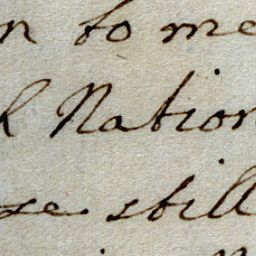 n to me
Nation
still